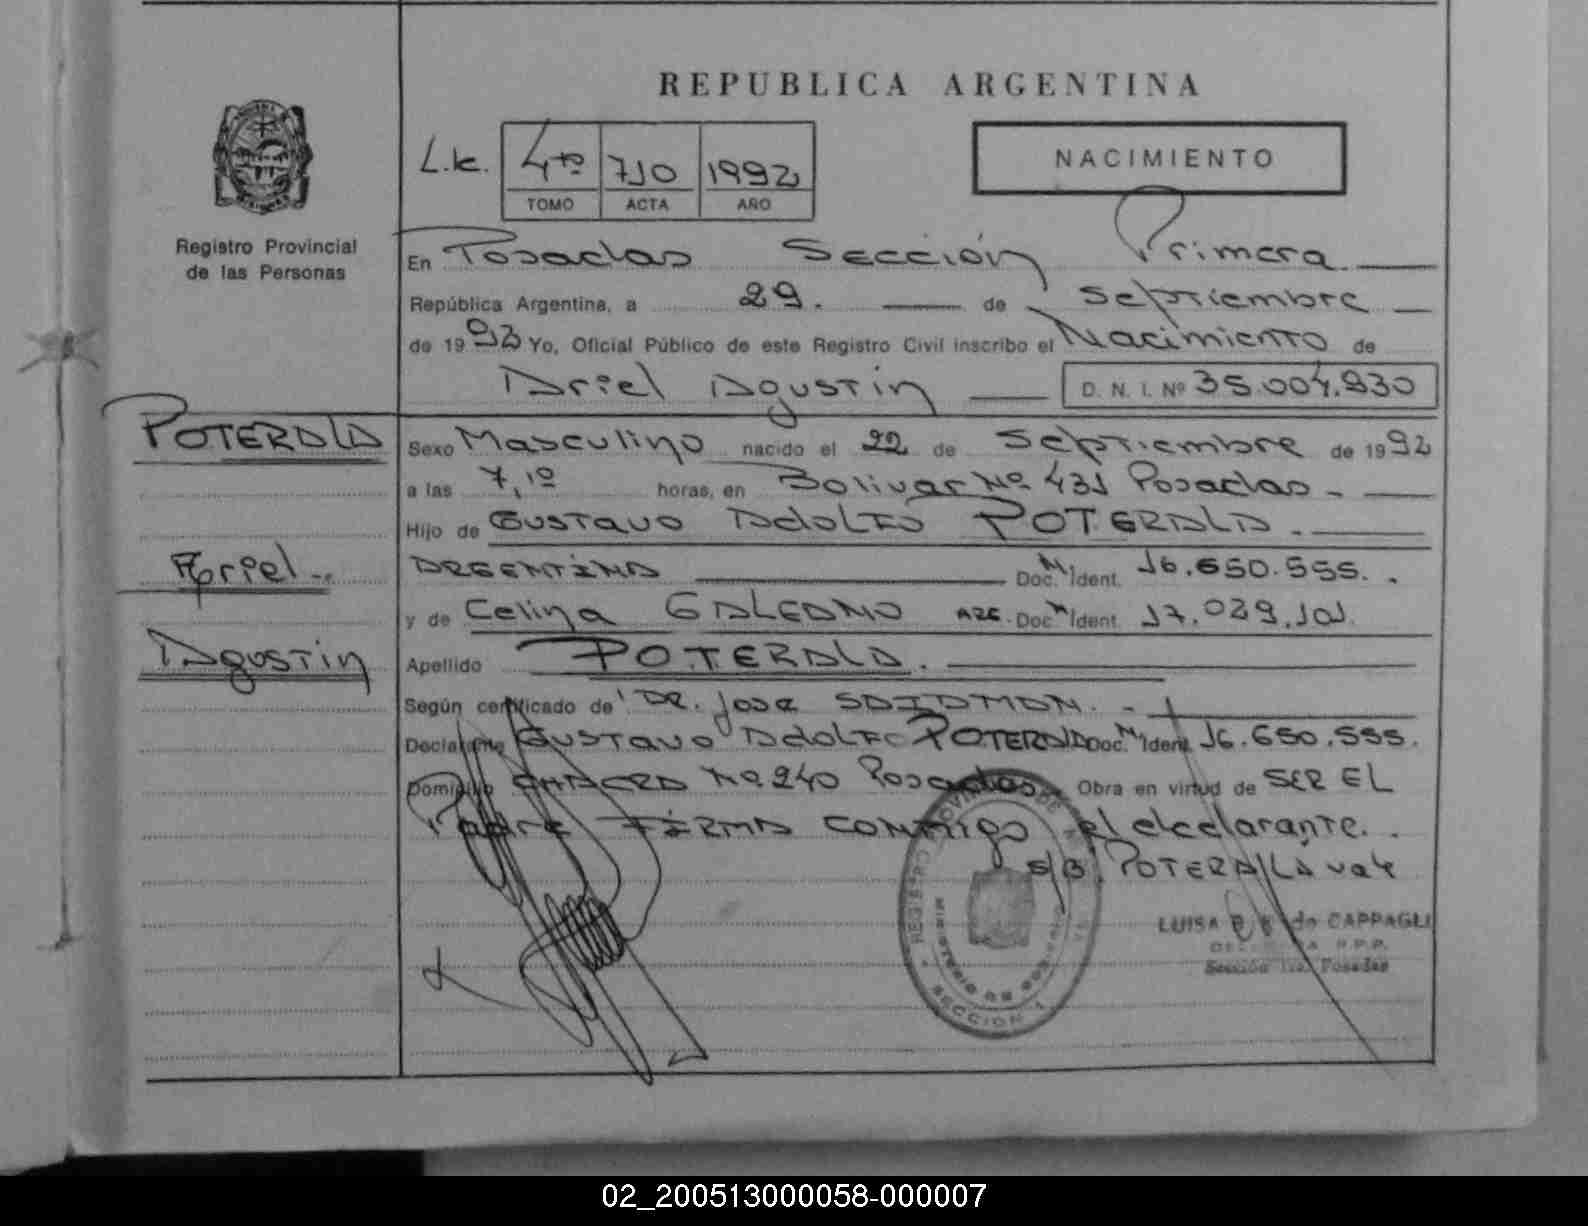 REPUBLICA ARGENTINA
L.k. 4to 710 1992
TOMO ACTA AÑO
NACIMIENTO
Registro Provincial
de las Personas
En Posadas Sección Primera
República Argentina, a 29. de Septiembre
de 1992 Yo, Oficial Público de este Registro Civil inscribo el Nacimiento de
Ariel Agustin D. N. I. Nº 35.004.930
POTERALA
Ariel
Agustin
Sexo Masculino nacido el 22 de Septiembre de 1992
a las 7,10 horas, en Bolivar Nº 431 Posadas -
Hijo de Gustavo Adolfo POTERALA.
ARGENTINA Doc. M. Ident. 16.650.555.
y de Celina GALEANO ARG. Doc. M Ident. 17.029.101.
Apellido POTERALA.
Según certificado de DR. Jose SAIDMAN. -
Declarante Gustavo Adolfo POTERALA Doc. M. Ident. 16.650.555.
Domicilio CHACRA Nº 240 Posadas Obra en virtud de SER EL
Padre FIRMA CONMigo el declarante.
S/B. POTERALA vale
LUISA de CAPPAGLI
R.P.P.
Sección 1ra. Posadas
SECCION 1
02_200513000058-000007